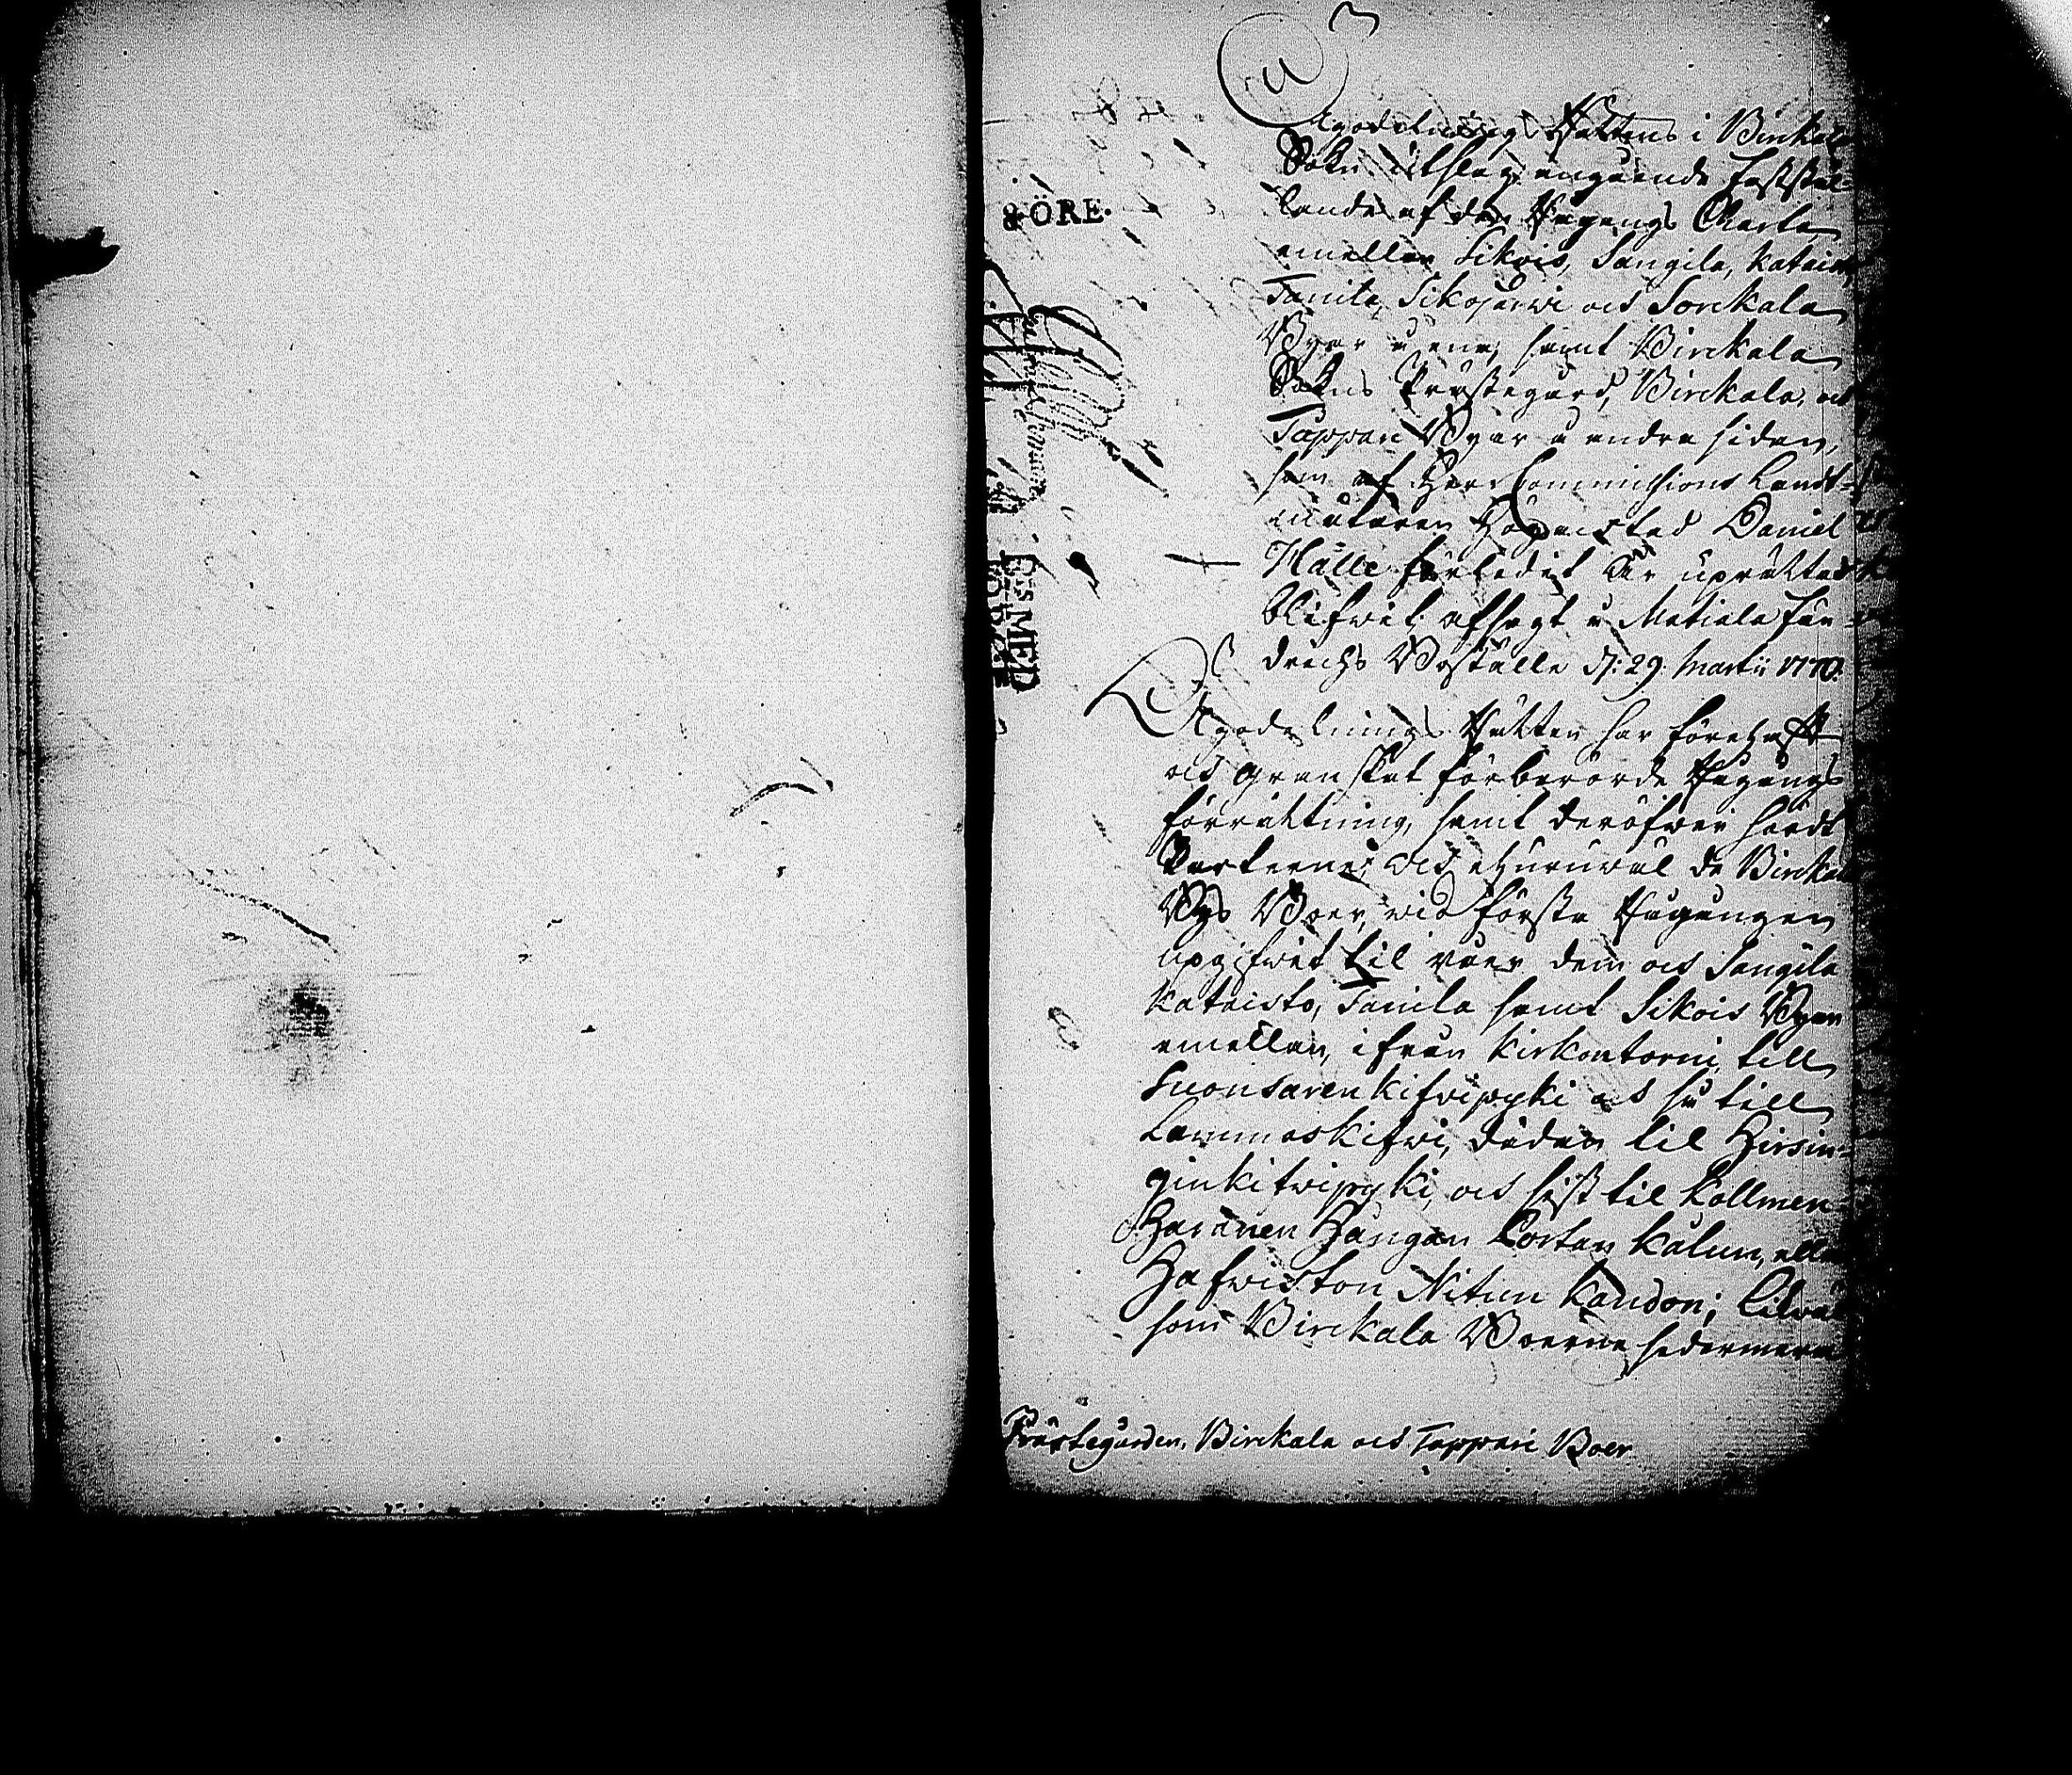 8 ÖRE.
Ägodelnings Rättens i Birckala
Sokn utslag angående fastställ-
lande af den Rågångs Charta
emellan Sikois, Sangila, Kataisto,
Tanila, Sikojärwi och Sorckala
Byar å ena, samt Birckala
Sokns Prästegård, Birckala, och
Tappari Byar å andra sidan,
som af Herr Commissions Landt-
mätaren Högacktad Daniel
Hall förledit år uprättad
blifwit; afsagt å Matiala Fän-
drichs Boställe d: 29. Martii 1770.
Ägodelnings Rätten har förehaft
och granskat förberörde Rågångs
förrättning, samt deröfwer hördt
Parterne; och ehuruwäl de Birckala
Bys Boer, wid första Rågången
upgifwit til råer dem och Sangila
Kataisto, Tanila samt Sikois Byar
emellan, ifrån Kirkontorni till
Suonsaren Kifwipyyki och så till
Lammaskifwi, dädan til Hirsin-
ginkifwipyyki, och sist til Kollmen-
haranen Hangan Portan Kalun, eller
Hafwiston Nitun Kaudon; likwäl
som Birckala Boerne sedermera
Prästegården, Birckala och Tappari Boer